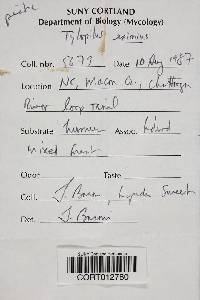 SUNY CORTLAND
Department of Biology (Mycology)
Tylopilus eximius
Coll. nbr. 5673 Date 10 Aug 1987
Location NC, Macon Co., Chattooga
River loop trail
Substrate humus Assoc.
Mixed forest
Odor Taste
Coll. J. Baroni,
Det. J. Baroni
CORT012780